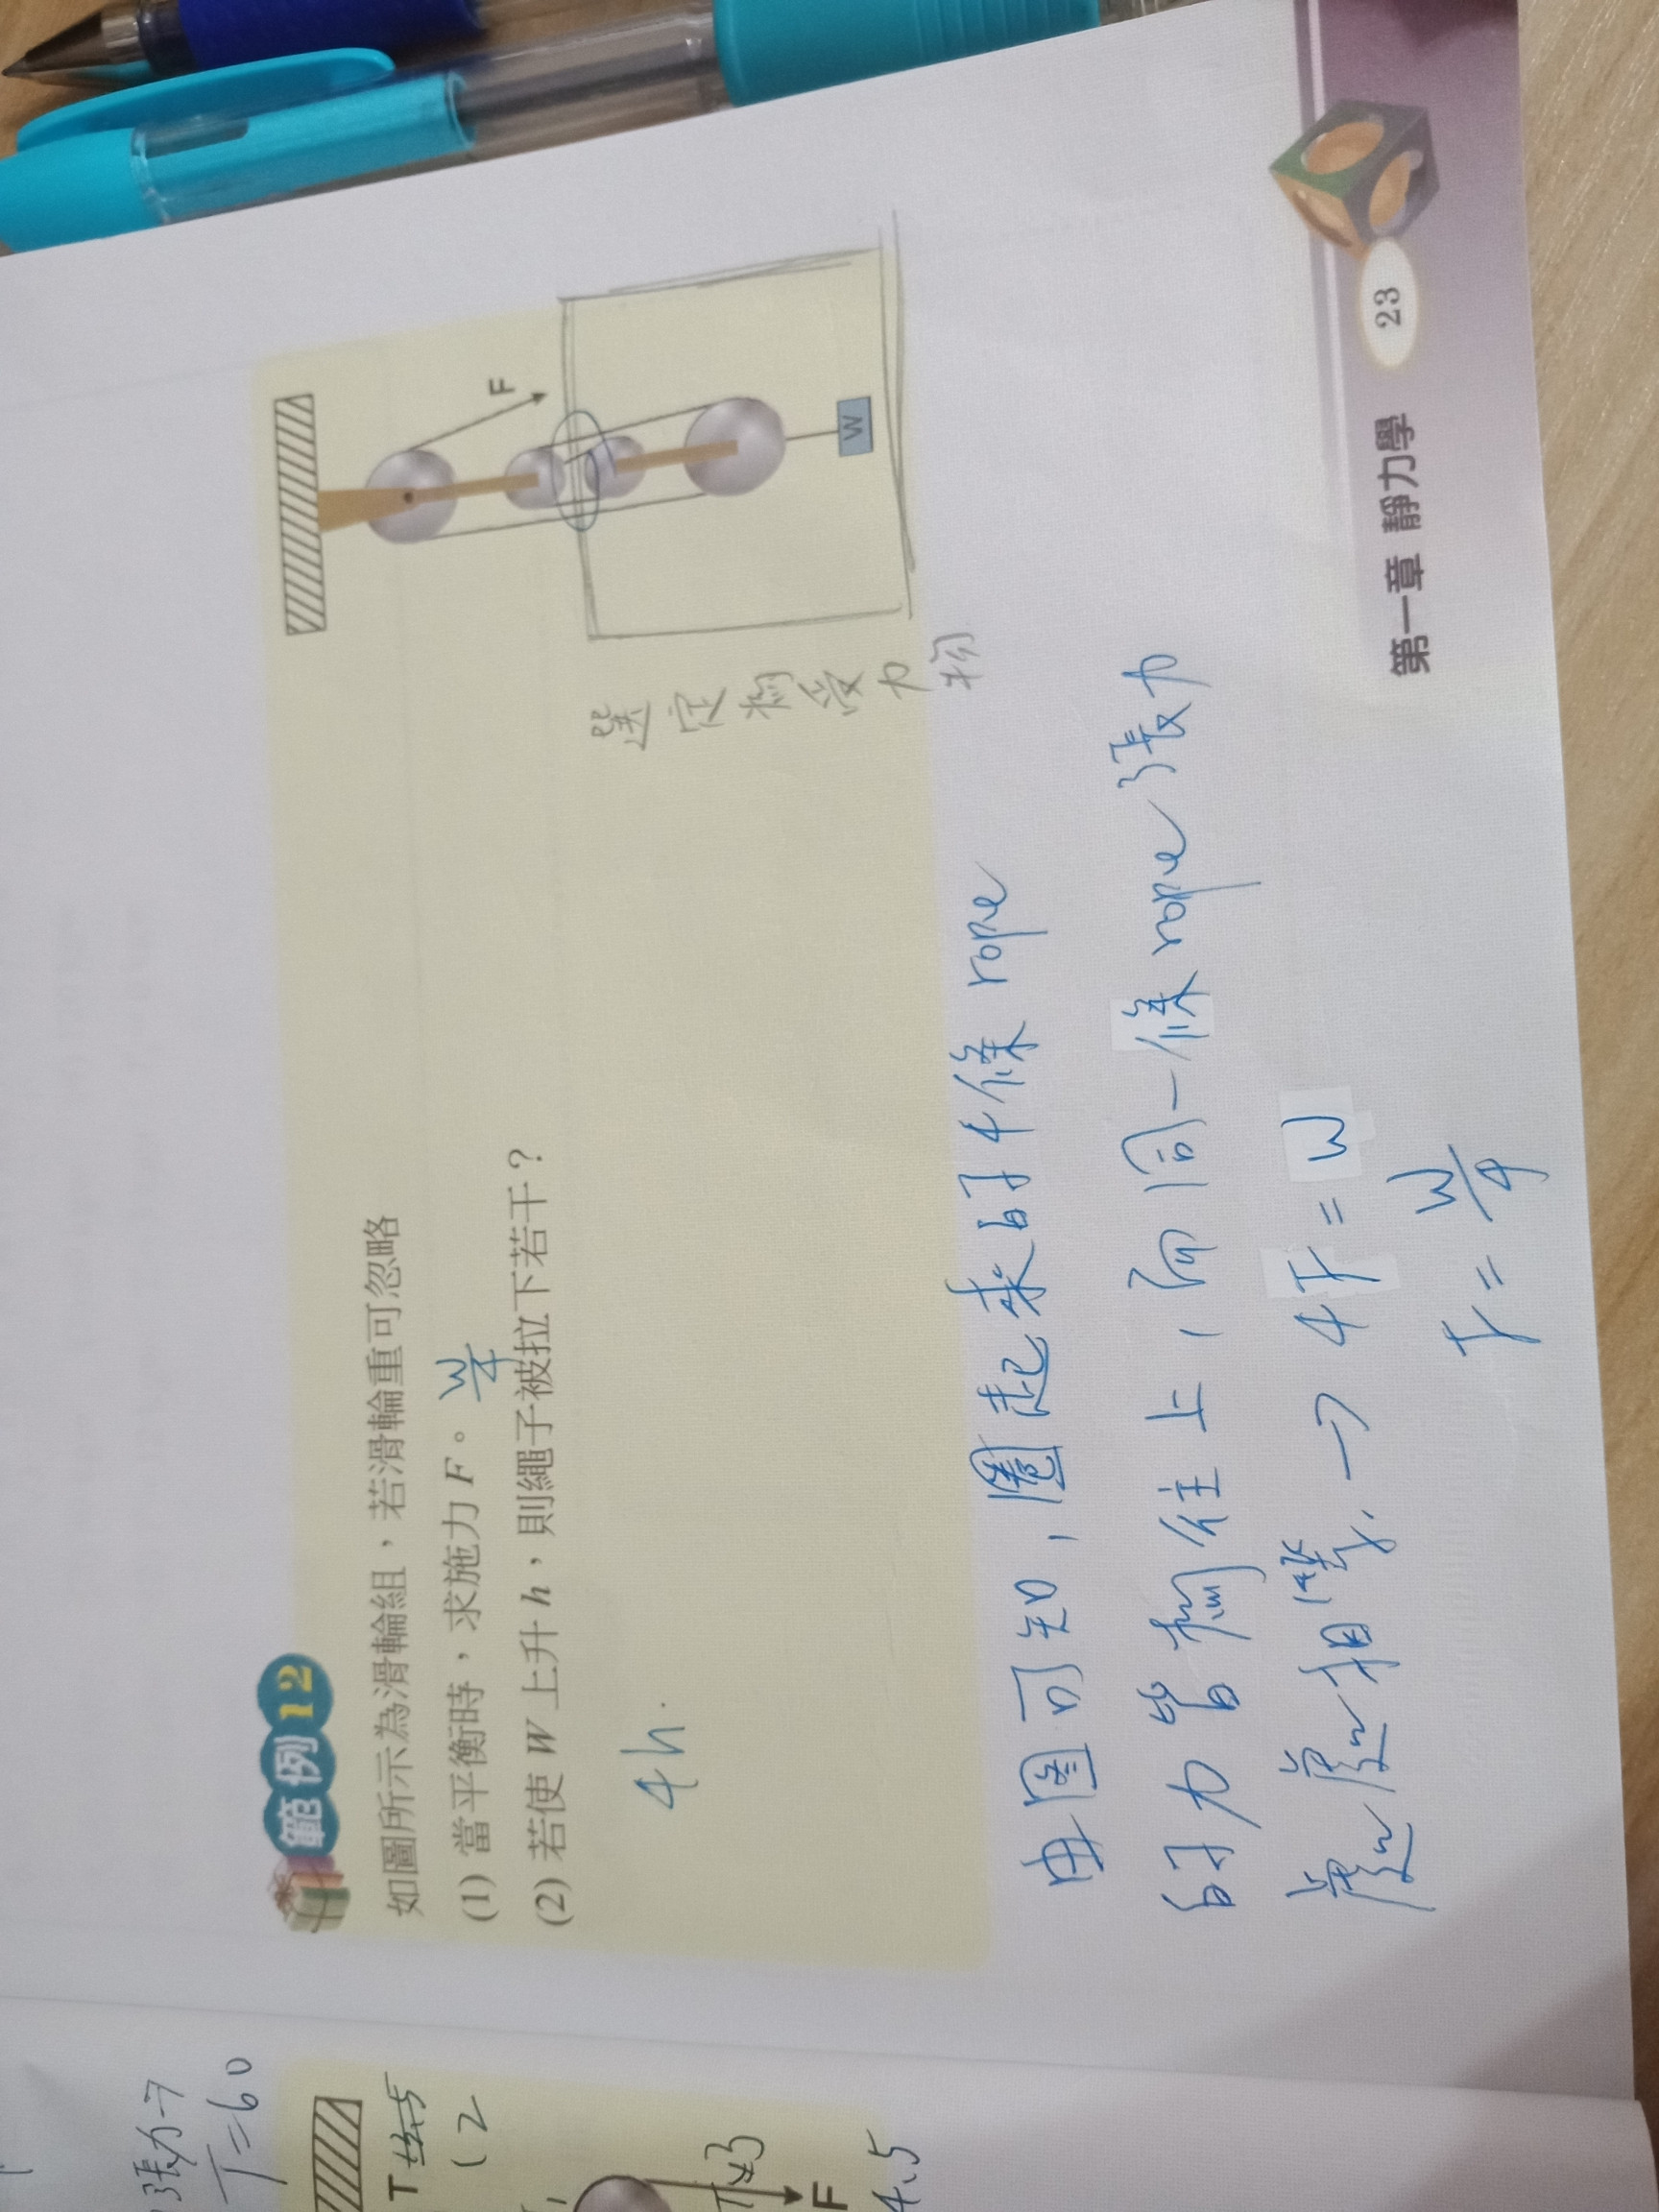 範例 12
如圖所示為滑輪組，若滑輪重可忽略
(1) 當平衡時，求施力 F。 W/4
(2) 若使 W 上升 h，則繩子被拉下若干？
4h.
F
W
選定為受力物
由圖可知，圈起來的4條 rope
的力皆為往上，而同一條 rope 張力
處處相等. → 4F = W
F = W/4
第一章 靜力學
23
張力→
T=60
T
(2
F
4.5